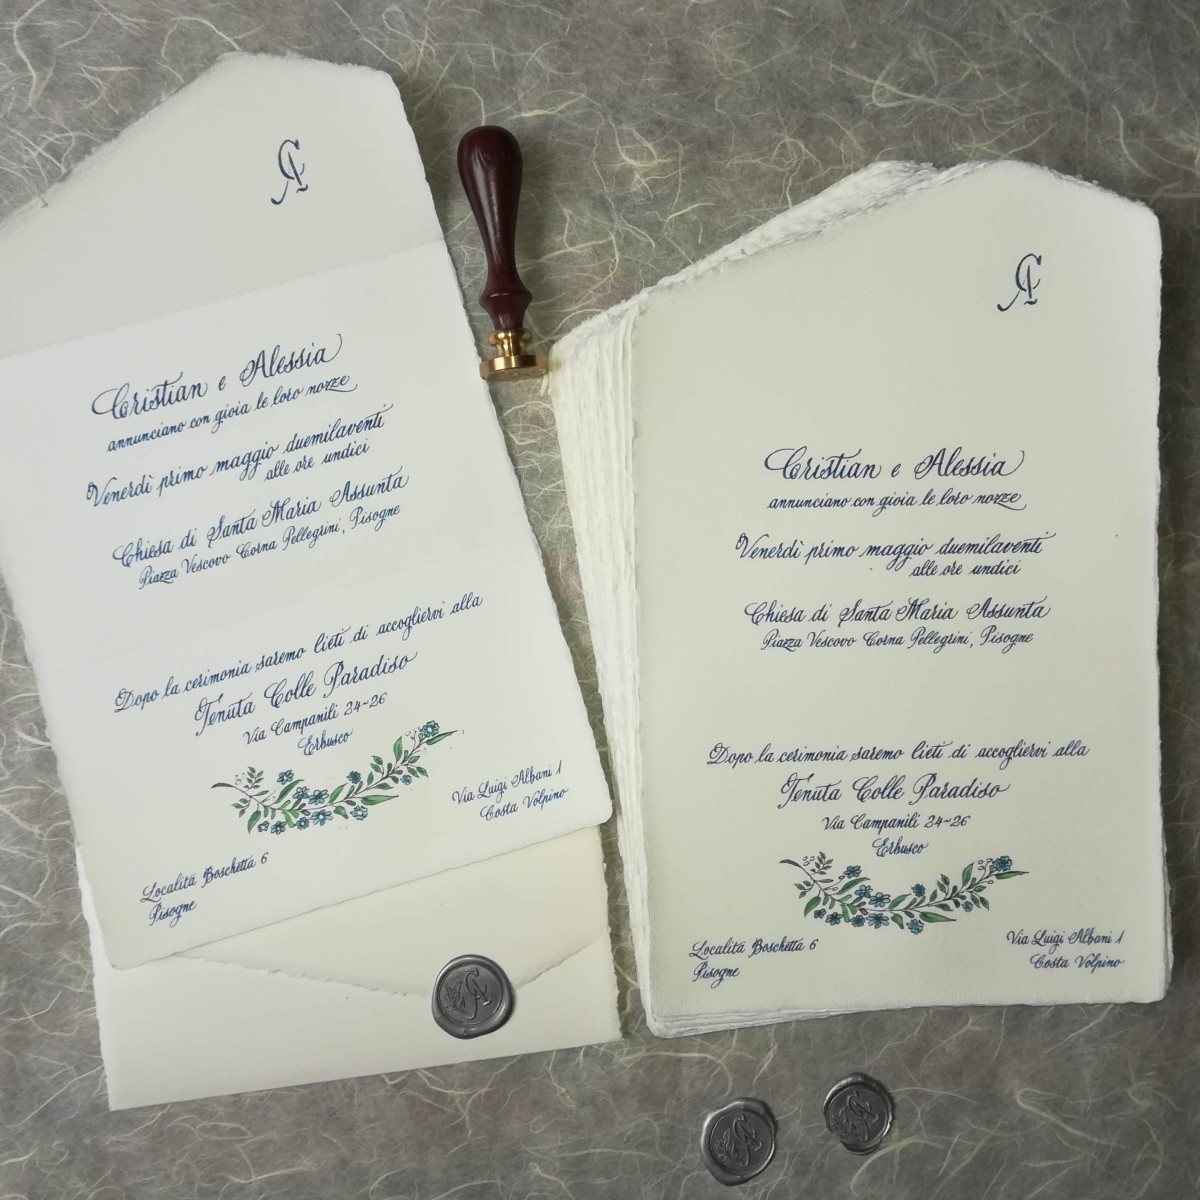 CA
Cristian e Alessia
annunciano con gioia le loro nozze
Venerdì primo maggio duemilaventi
alle ore undici
Chiesa di Santa Maria Assunta
Piazza Vescovo Corna Pellegrini, Pisogne
Dopo la cerimonia saremo lieti di accogliervi alla
Tenuta Colle Paradiso
Via Campanili 24~26
Erbusco
Via Luigi Albani 1
Costa Volpino
Località Boschetta 6
Pisogne
CA
CA
Cristian e Alessia
annunciano con gioia le loro nozze
Venerdì primo maggio duemilaventi
alle ore undici
Chiesa di Santa Maria Assunta
Piazza Vescovo Corna Pellegrini, Pisogne
Dopo la cerimonia saremo lieti di accogliervi alla
Tenuta Colle Paradiso
Via Campanili 24~26
Erbusco
Località Boschetta 6
Pisogne
Via Luigi Albani 1
Costa Volpino
CA
CA